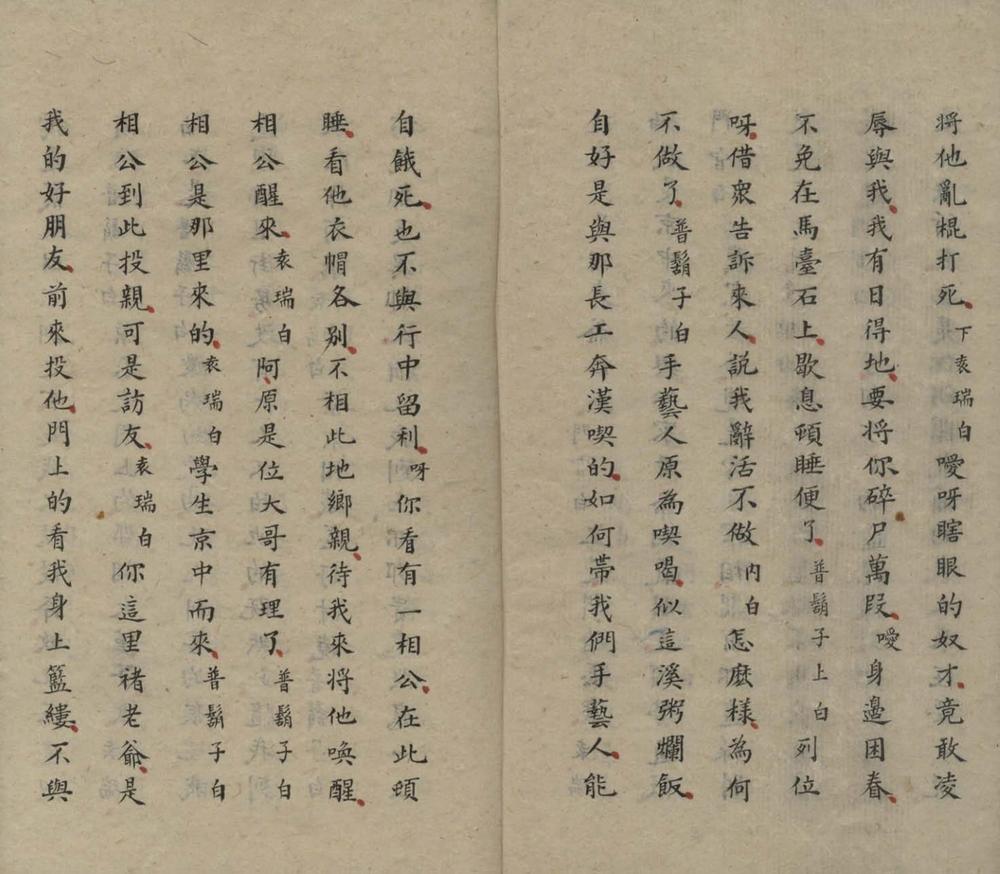 將他亂棍打死下袁瑞白噯呀瞎眼的奴才竟敢凌
辱與我我有日得地要將你碎尸萬段噯身邊困眷
不免在馬臺石上歇息頓睡便了普鬍子上白列位
呀借衆告訴來人說我辭活不做內白怎麽樣為何
不做了普鬍子白手藝人原為喫喝似這溪粥爛飯
自好是與那長工奔漢喫的如何帶我們手藝人能
自餓死也不與行中留利呀你看有一相公在此頓
睡看他衣帽各别不相此地鄉親待我來將他喚醒
相公醒來袁瑞白阿原是位大哥有理了普鬍子白
相公是那里來的袁瑞白學生京中而來普鬍子白
相公到此投親可是訪友袁瑞白你這里褚老爺是
我的好朋友前來投他門上的看我身上籃縷不與